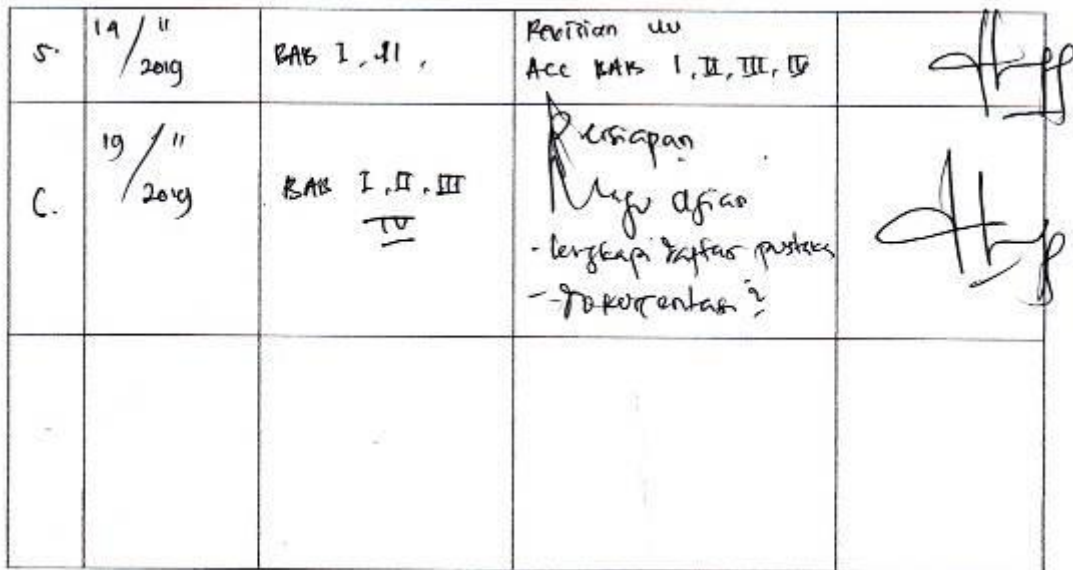 5. 14/11 2019 BAB I, II, Revisian
ACC BAB I, II, III, IV
6. 19/11 2019 BAB I, II, III
IV
Persiapan
Maju Ujian
- lengkapi daftar pustaka
- Dokumentasi ?